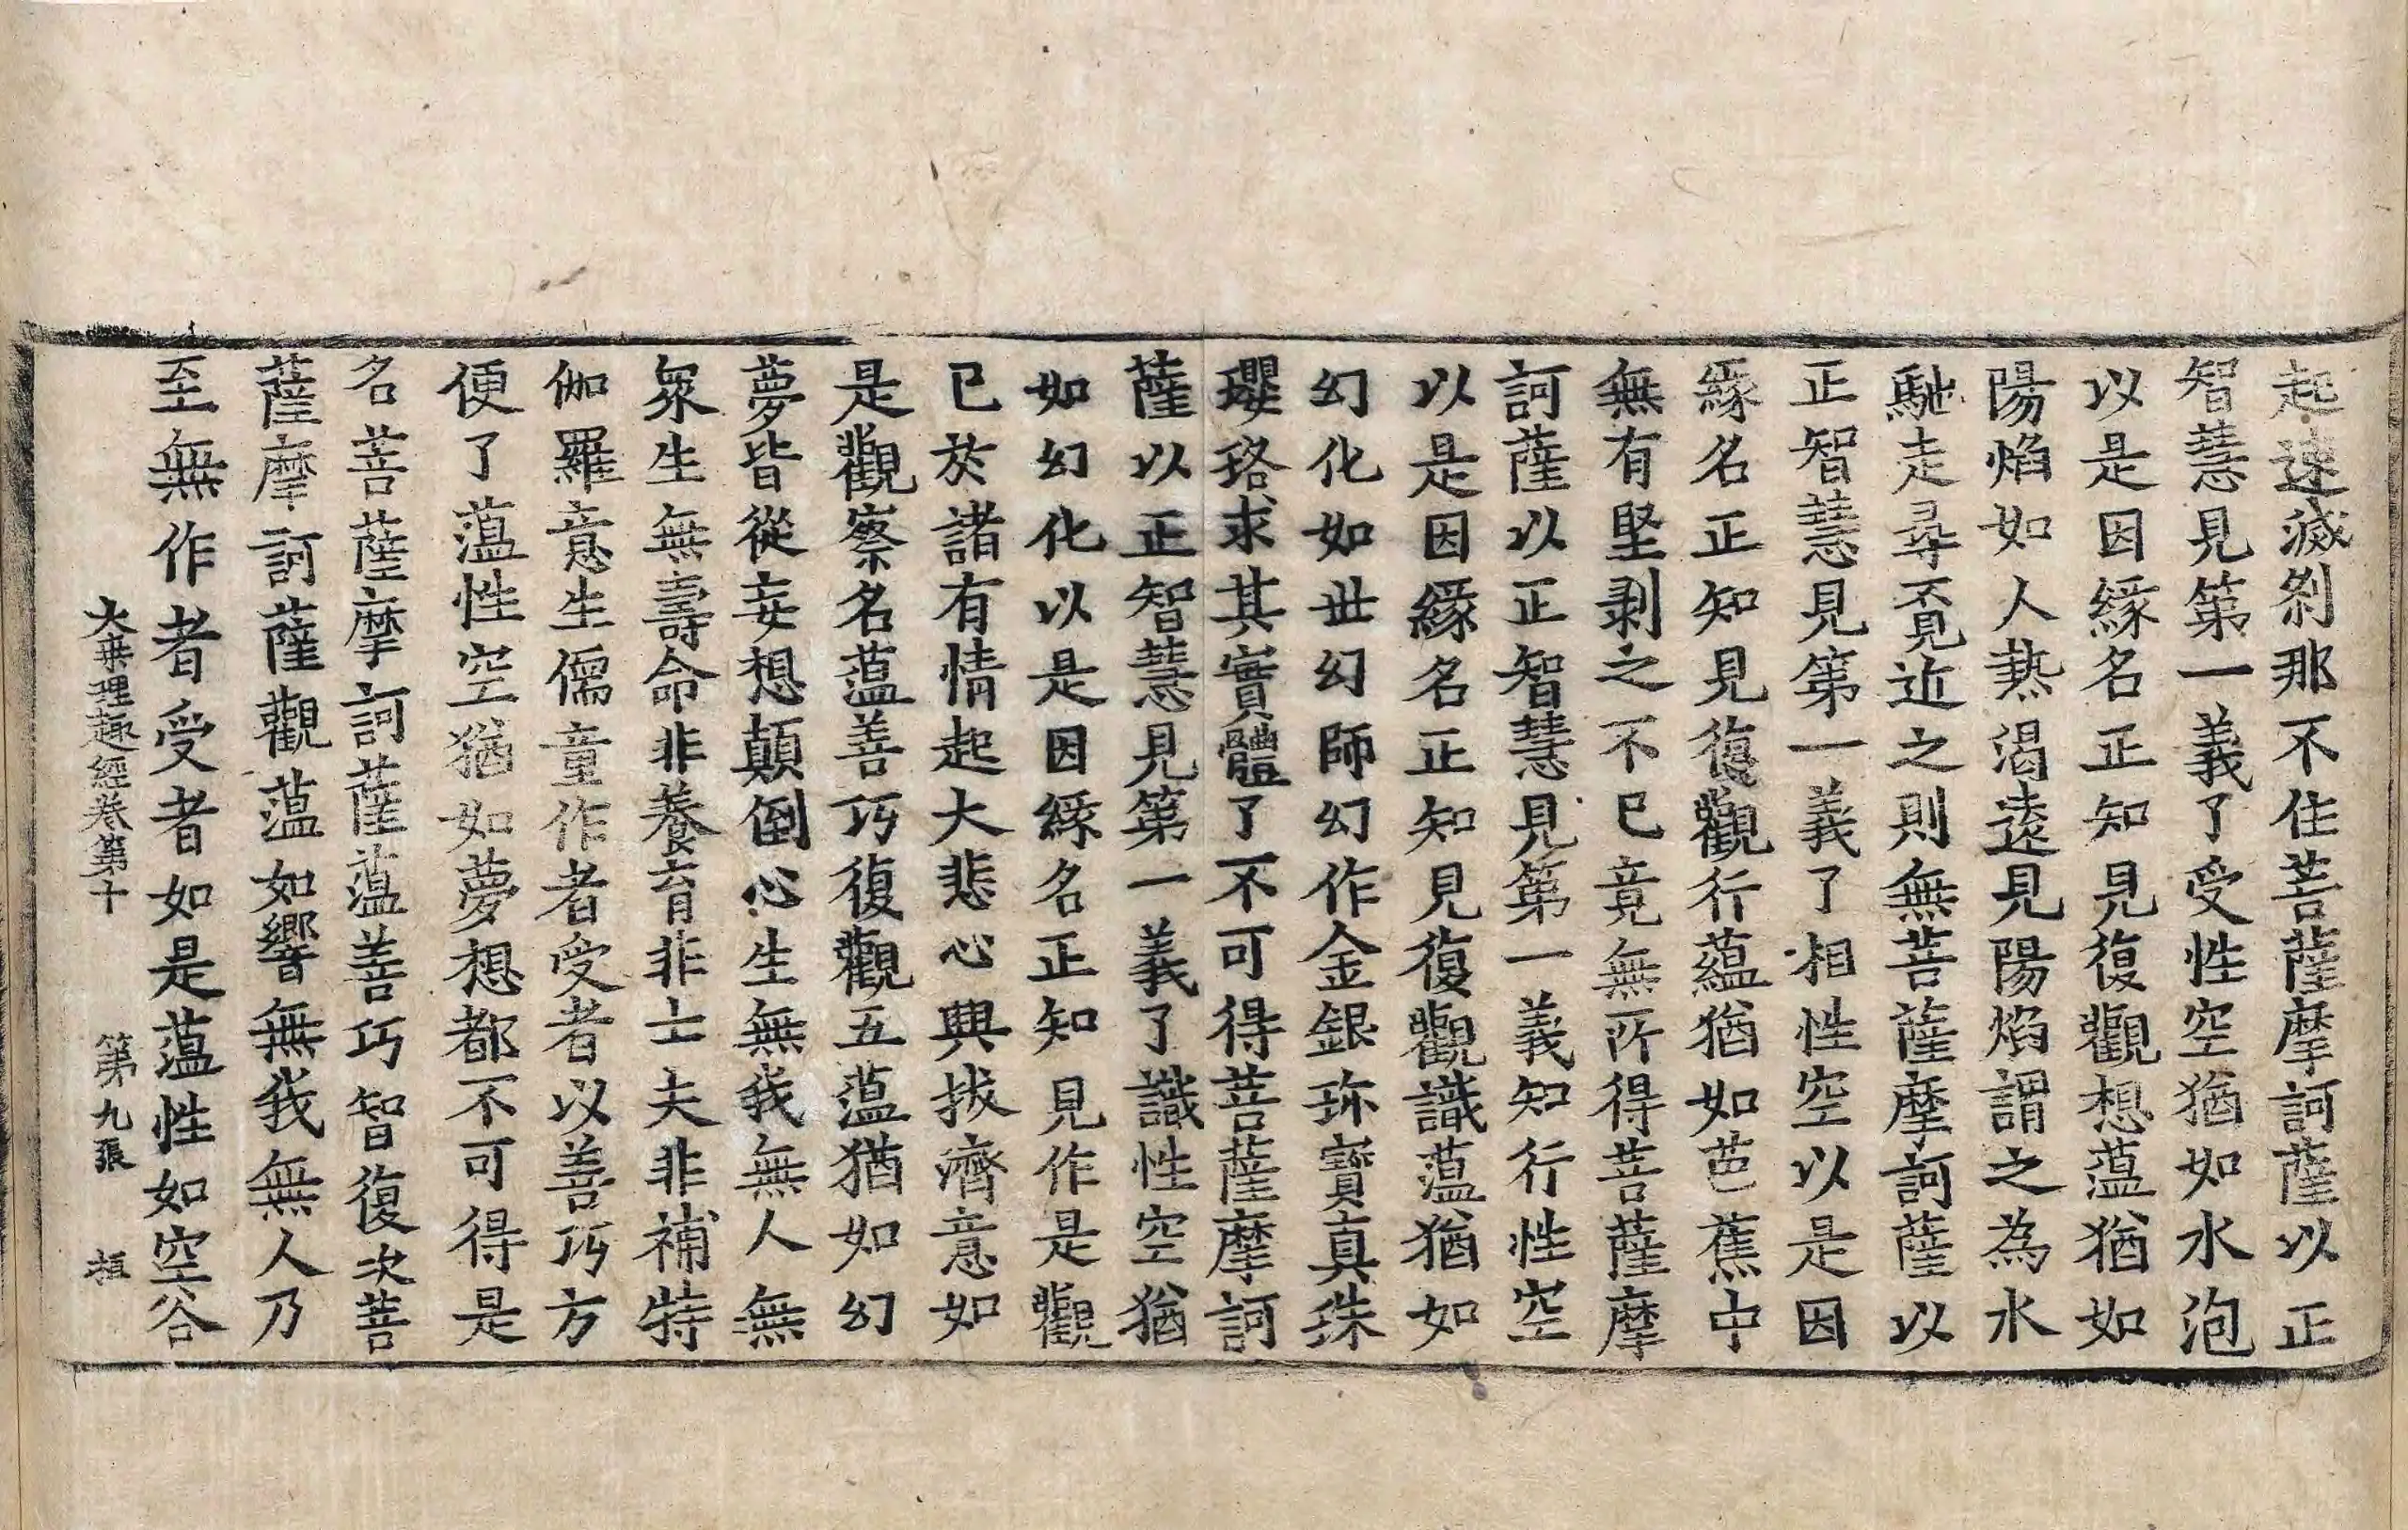 起速滅剎那不住菩薩摩訶薩以正
智慧見第一義了受性空猶如水泡
以是因緣名正知見復觀想薀猶如
陽焰如人熱渴遠見陽焰謂之為水
馳走尋覓近之則無菩薩摩訶薩以
正智慧見第一義了相性空以是因
緣名正知見復觀行蘊猶如芭蕉中
無有堅剥之不已竟無所得菩薩摩
訶薩以正智慧見第一義知行性空
以是因緣名正知見復觀識薀猶如
幻化如世幻師幻作金銀珎寶真珠
瓔珞求其實體了不可得菩薩摩訶
薩以正智慧見第一義了識性空猶
如幻化以是因緣名正知見作是觀
已於諸有情起大悲心興拔濟意如
是觀察名薀善巧復觀五薀猶如幻
夢皆從妄想顛倒心生無我無人無
衆生無壽命非養育非士夫非補特
伽羅意生儒童作者受者以善巧方
便了薀性空猶如夢想都不可得是
名菩薩摩訶薩薀善巧智復次菩
薩摩訶薩觀薀如響無我無人乃
至無作者受者如是薀性如空谷
大乗理趣經卷第十 第九張 桓